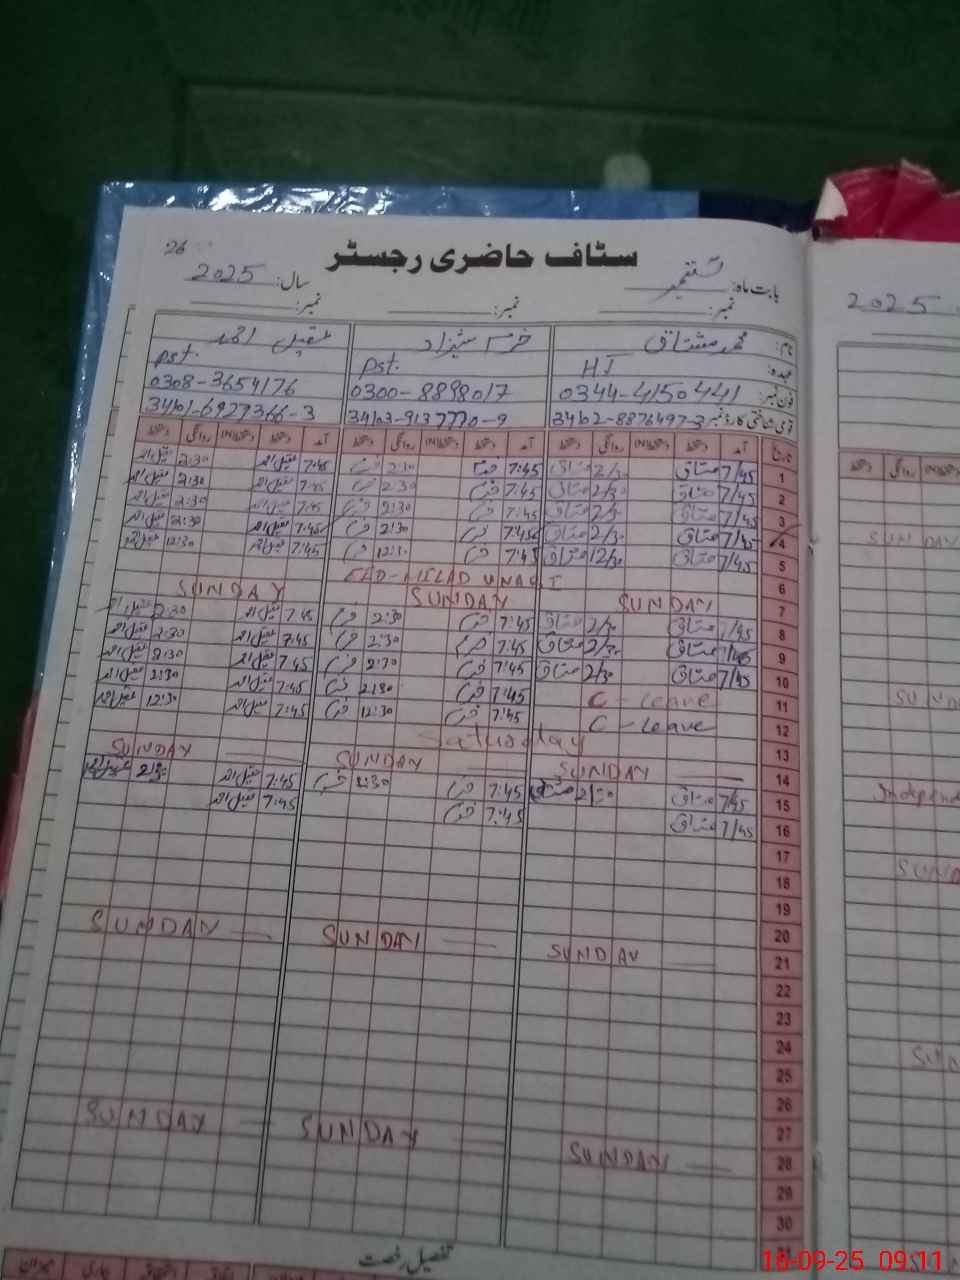 26
سٹاف حاضری رجسٹر
بابت ماہ: ستمبر
سال: 2025
نمبر: نمبر: نمبر:
نام: محمد مشتاق خرم شہزاد عقیل احمد
عہدہ: HT Pst. Pst.
فون نمبر: 0344-4150441 0300-8898017 0308-3654176
قومی شناختی کارڈ نمبر 34102-8876497-3 34103-9137770-9 34101-6927366-3
تاریخ آمد دستخط روانگی دستخط آمد دستخط روانگی دستخط آمد دستخط روانگی دستخط
1 7/45 مشتاق 2/30 مشتاق 7:45 خرم 2:30 خرم 7:45 عقیل احمد 2:30 عقیل احمد
2 7/45 مشتاق 2/30 مشتاق 7:45 خرم 2:30 خرم 7:45 عقیل احمد 2:30 عقیل احمد
3 7/45 مشتاق 2/30 مشتاق 7:45 خرم 2:30 خرم 7:45 عقیل احمد 2:30 عقیل احمد
4 7/45 مشتاق 2/30 مشتاق 7:45 خرم 2:30 خرم 7:45 عقیل احمد 2:30 عقیل احمد
5 7/45 مشتاق 12/30 مشتاق 7:45 خرم 12:30 خرم 7:45 عقیل احمد 12:30 عقیل احمد
6 EAD-MILAD UNABI
7 SUNDAY SUNDAY SUNDAY
8 7/45 مشتاق 2/30 مشتاق 7:45 خرم 2:30 خرم 7:45 عقیل احمد 2:30 عقیل احمد
9 7/45 مشتاق 2/30 مشتاق 7:45 خرم 2:30 خرم 7:45 عقیل احمد 2:30 عقیل احمد
10 7/45 مشتاق 2/30 مشتاق 7:45 خرم 2:30 خرم 7:45 عقیل احمد 2:30 عقیل احمد
11 C-leave 7:45 خرم 2:30 خرم 7:45 عقیل احمد 2:30 عقیل احمد
12 C-leave 7:45 خرم 12:30 خرم 7:45 عقیل احمد 12:30 عقیل احمد
13 Saturday
14 SUNDAY SUNDAY SUNDAY
15 7/45 مشتاق مشتاق 7:45 خرم 2:30 خرم 7:45 عقیل احمد 2:30
16 7/45 مشتاق 7:45 خرم 7:45 عقیل احمد
17
18
19
20
21 SUNDAY SUNDAY SUNDAY
22
23
24
25
26
27
28 SUNDAY SUNDAY SUNDAY
29
30
31
تفصیل رخصت
2025
SUNDAY
Independ
SUND
16-09-25 09:11